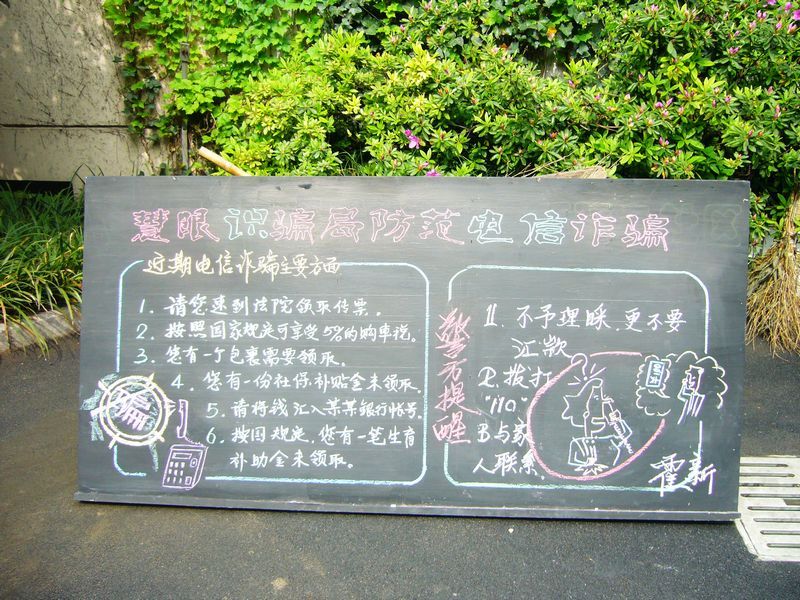 慧眼识骗局防范电信诈骗
近期电信诈骗主要方面
1. 请您速到法院领取传票。
2. 按照国家规定可享受5%的购车税。
3. 您有一个包裹需要领取。
4. 您有一份社保补贴金未领取。
5. 请将钱汇入某某银行帐号。
6. 按国规定,您有一笔生育
补助金未领取。
骗
警方提醒
不予理睬、更不要
汇款
拨打
"110"
与家
人联系。
霍新